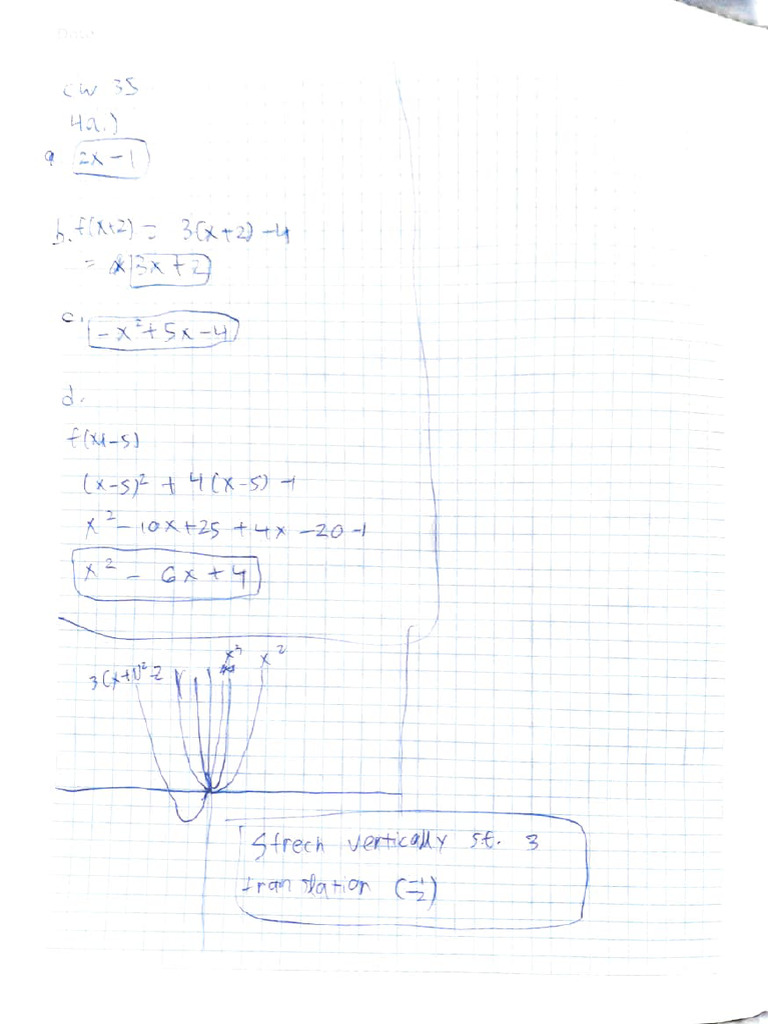 CW 35
4a.)
a 2x-1
b. f(x+2) = 3(x+2) -4
= 3x+2
c. -x²+5x-4
d.
f(x-5)
(x-5)² + 4(x-5) -1
x²-10x+25 +4x -20-1
x² - 6x+4
x² x²
3(x+1)²-2
Strech vertically s.f. 3
translation (-1 -2)